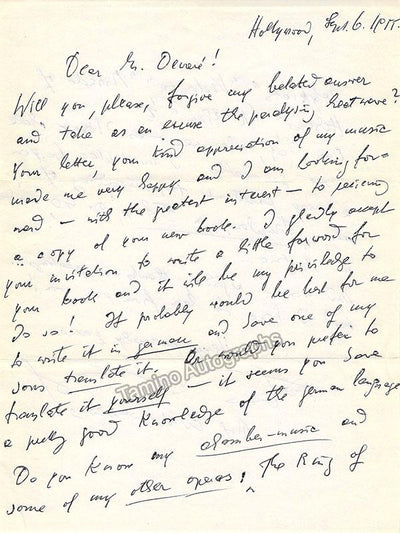 Hollywood, Sept. 6. 1955.
Dear Mr. Devaré!
Will you, please, forgive my belated answer
and take as an excuse the paralying heatwave?
Your letter, your kind appreciation of my music
made me very happy and I am looking for=
ward – with the greatest interest – to reciving
a copy of your new book. I gladly accept
your invitation to write a little forword for
your book and it will be my priviledge to
do so! It probably would be best for me
to write it in german and have one of my
sons translate it. Or would you prefer to
translate it yourself – it seems you have
a pretty good knowledge of the german language
Do you know my chamber-music and
some of my other operas: The Ring of
Tamino Autographs